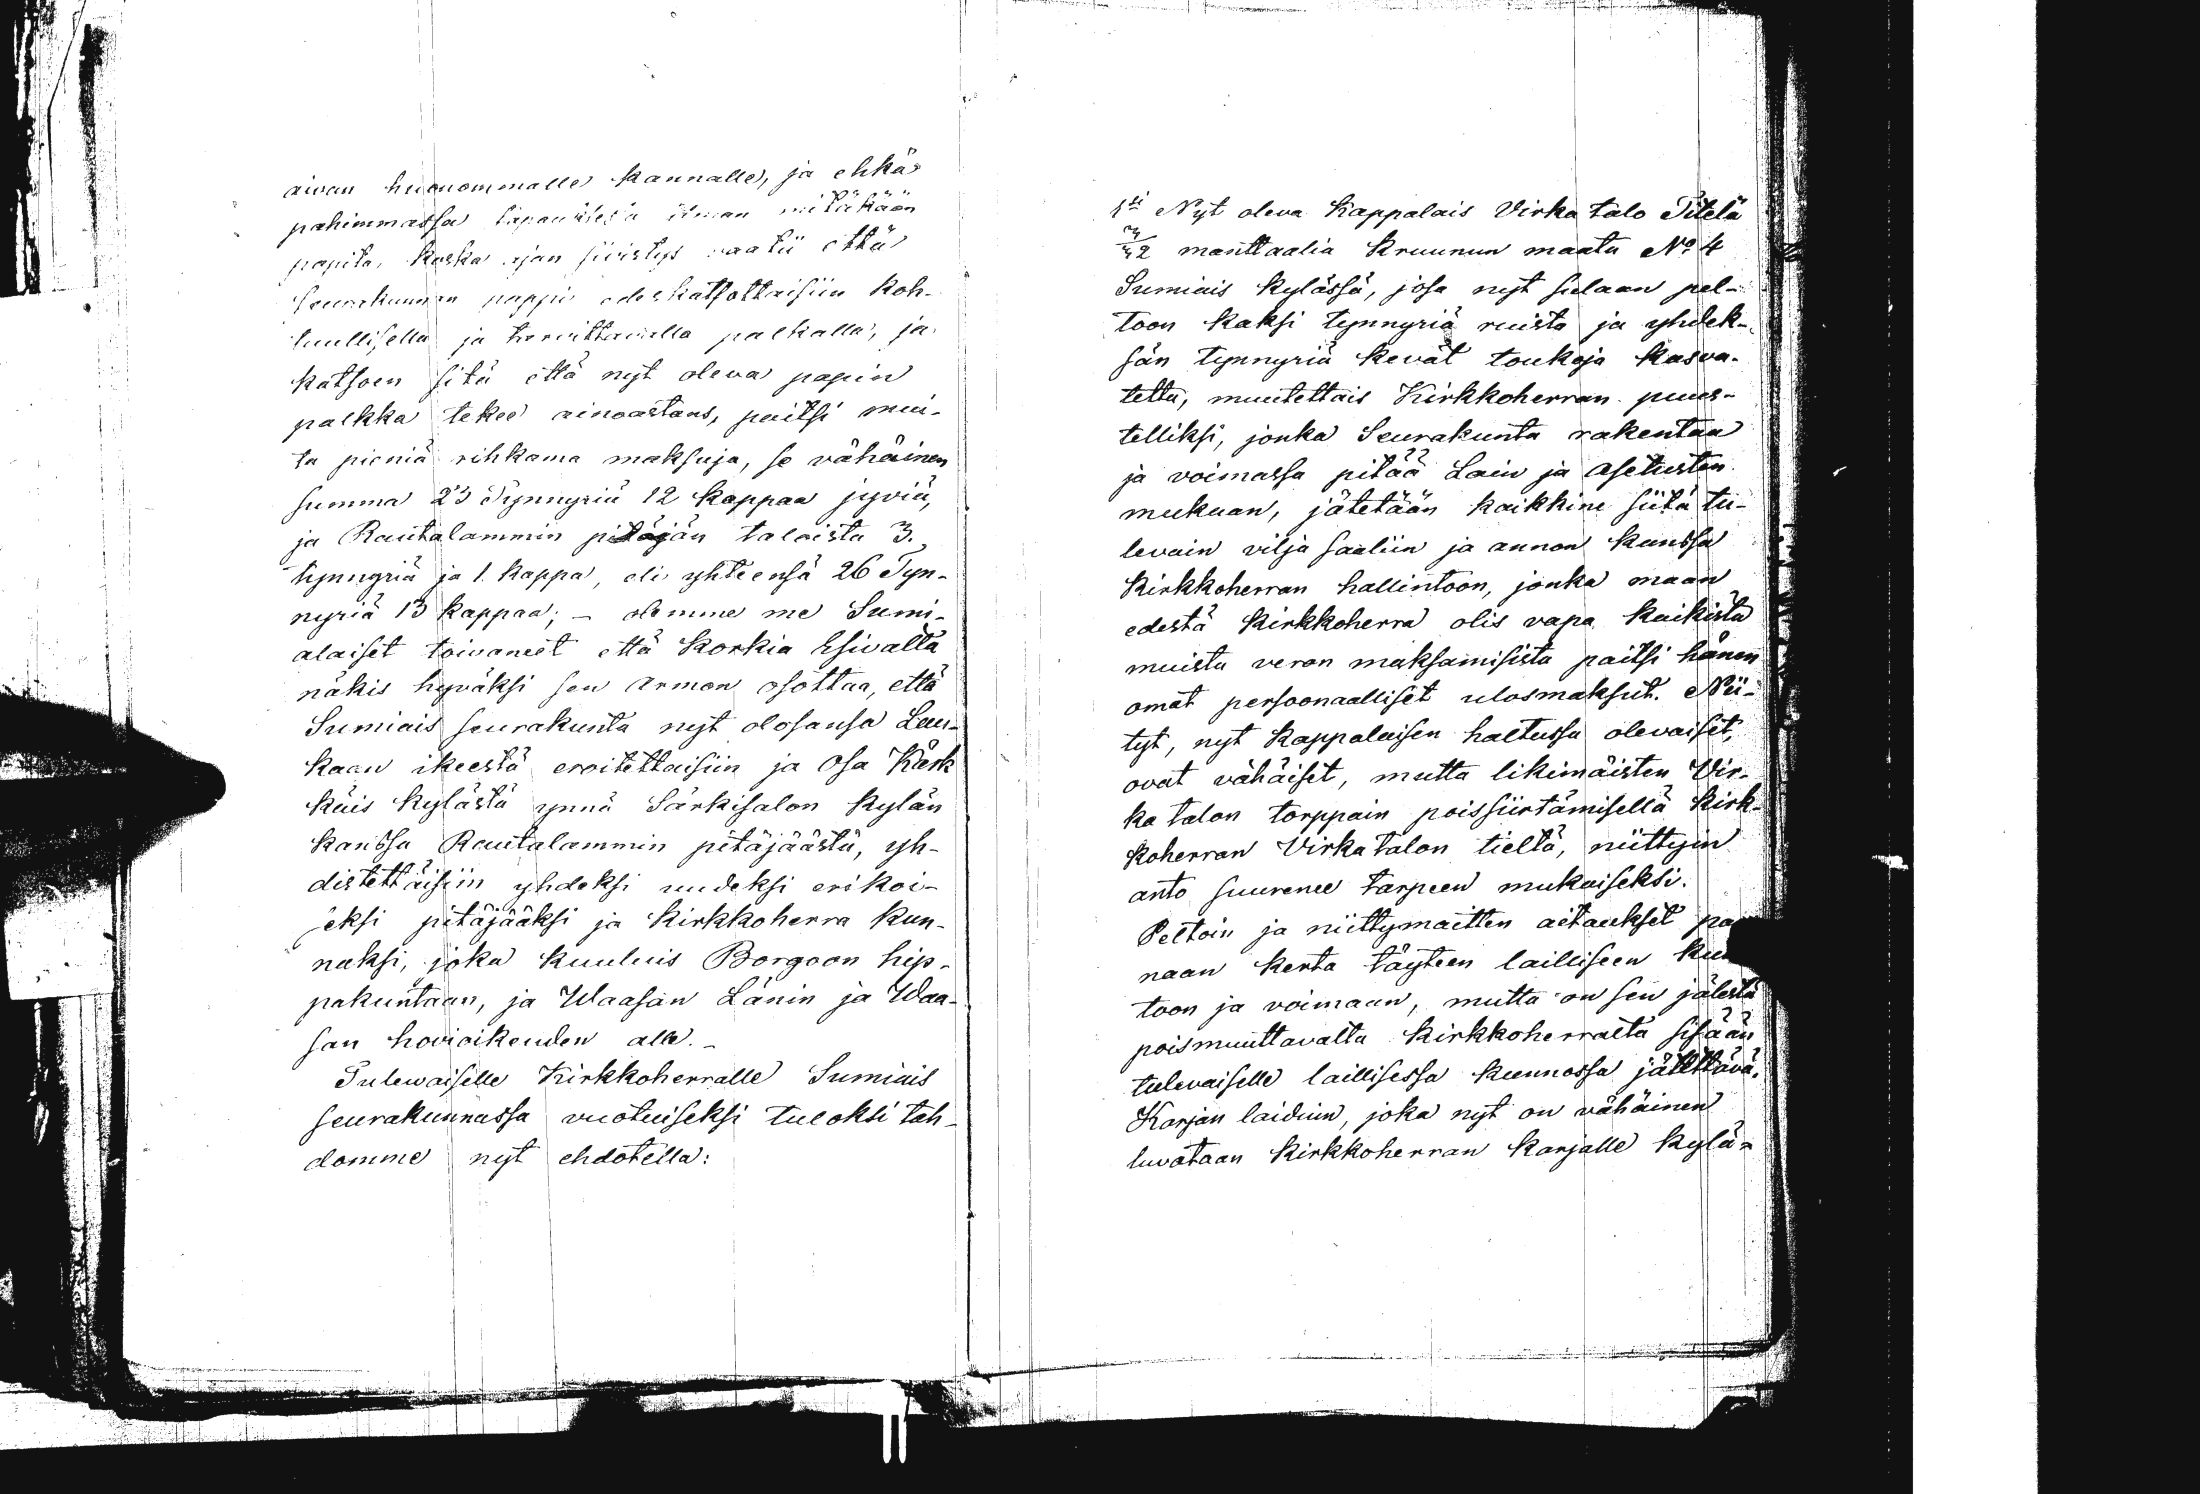 aivan huonommalle kannalle, ja ehkä
pahimmassa tapauksessa ilman mitäkään
papita, koska ajan sivistys vaatii että
seurakunnan pappi edeskatsottaisiin koh-
tuullisella ja tarvittavalla palkalla, ja
katsoen sitä että nyt oleva papin
palkka tekee ainoastans, paitsi mui-
ta pieniä rihkama maksuja, se vähäinen
summa 23 Tynnyriä 12 kappaa jyviä,
ja Rautalammin pitäjän taloista 3.
tynnyriä ja 1. kappa, eli yhteensä 26 Tyn-
nyriä 13 kappaa; – olemme me Sumi-
alaiset toivoneet että korkia Esivalta
näkis hyväksi sen armon osottaa, että
Sumiais seurakunta nyt olosansa Lau-
kaan ikeestä eroitettaisiin ja osa Kärk
käis kylästä ynnä Särkisalon kylän
kanssa Rautalammin pitäjäästä, yh-
distettäisiin yhdeksi uudeksi erikoi-
seksi pitäjääksi ja kirkkoherra kun-
naksi, joka kuuluis Borgoon hip-
pakuntaan, ja Waasan Länin ja Waa-
san hovioikeuden alle. –
Tulewaiselle Kirkkoherralle Sumiais
seurakunnassa vuotuiseksi tuloksi tah-
domme nyt ehdotella:
1si Nyt oleva Kappalais Virka talo Titelä
manttaalia kruunun maata No 4
Sumiais kylässä, josa nyt sulaan pel-
toon kaksi tynnyriä ruista ja yhdek-
sän tynnyriä kevät toukoja kasva-
tetta, muutettais Kirkkoherran puus-
telliksi, jonka Seurakunta rakentaa
ja voimassa pitää Lain ja asetusten
mukaan, jätetään kaikkine siitä tu-
levain vilja saaliin ja annon kanssa
kirkkoherran hallintoon, jonka maan
edestä kirkkoherra olis vapa kaikista
muista veron maksamisista paitsi hänen
omat persoonaalliset ulosmaksut. Nii-
tyt, nyt kappalaisen haltussa olevaiset,
ovat vähäiset, mutta likimäisten Vir-
ka talon torppain poissiirtämisellä kirk-
koherran Virka talon tieltä, niittyin
anto suurenee tarpeen mukaiseksi.
Peltoin ja niittymaitten aitaukset pa
naan kerta täyteen lailliseen kun
toon ja voimaan, mutta on sen jälestä
poismuuttavalta kirkkoherralta sisään
tulevaiselle laillisessa kunnossa jätettävä.
Karjan laidun, joka nyt on vähäinen
luvataan kirkkoherran karjalle kylä-